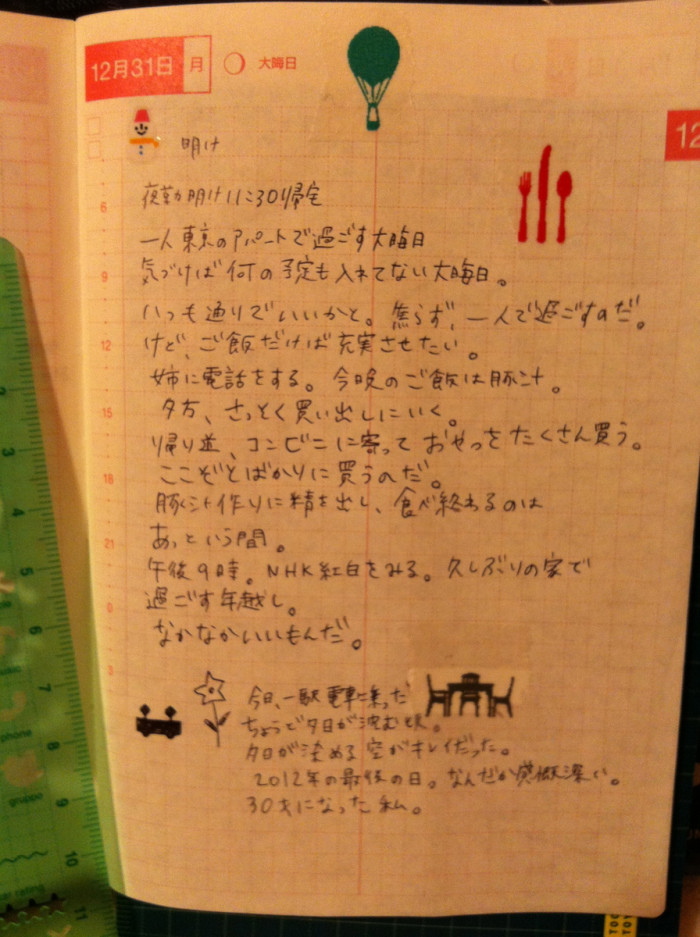 12月31日 月 大晦日
12
明け
夜勤明け11:30帰宅
一人東京のアパートで過ごす大晦日
気づけば何の予定も入れてない大晦日。
いつも通りでいいかと。焦らず、一人で過ごすのだ。
けど、ご飯だけは充実させたい。
姉に電話をする。今晩のご飯は豚汁。
夕方、さっそく買い出しにいく。
帰り道、コンビニに寄っておやつをたくさん買う。
ここぞとばかりに買うのだ。
豚汁作りに精を出し、食べ終わるのは
あっという間。
午後9時。NHK紅白をみる。久しぶりの家で
過ごす年越し。
なかなかいいもんだ。
今日、一駅電車に乗った
ちょうど夕日が沈む頃。
夕日が染める空がキレイだった。
2012年の最後の日。なんだか感慨深い。
30才になった私。
6
9
12
15
18
21
0
3
2
3
4
5
6
7
8
9
10
11
phone